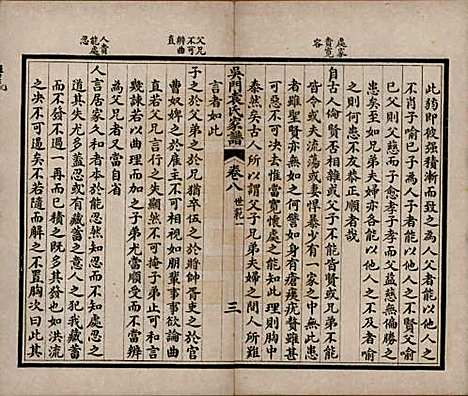 處家貴寬容
此弱即彼强積漸而致之為人父者能以他人之不
肖子喻己子為人子者能以他人之不賢父喻
己父則父慈而子愈孝子孝而父益慈無偏勝之
患矣至於兄弟夫婦亦各能以他人之不及者喻
之則何患不友恭正順者哉
自古人倫賢否相雜或父子不能皆賢或兄弟不能
皆令或夫流蕩或妻悍暴少有一家之中無此患
者雖聖賢亦無如之何譬如身有瘡痍疣贅雖甚
可惡不可決去惟當寬懷處之能知此理則胸中
泰然矣古人所以謂父子兄弟夫婦之間人所難
吳門袁氏家譜 卷八 世範 三
父兄不可辨曲直
言者如此
子之於父弟之於兄猶卒伍之於將帥胥吏之於官
曹奴婢之於雇主不可相視如朋輩事事欲論曲
直若父兄言行之失顯然不可掩子弟止可和言
幾諫若以曲理而加之子弟尤當順受而不當辨
為父兄者又當自省
人貴能處忍
人言居家久和者本於能忍然知忍而不知處忍之
道其失尤多蓋忍或有藏蓄之意人之犯我藏蓄
而不發不過一再而已積之既多其發也如洪流
之決不可遏矣不若隨而解之不置胸次曰此其